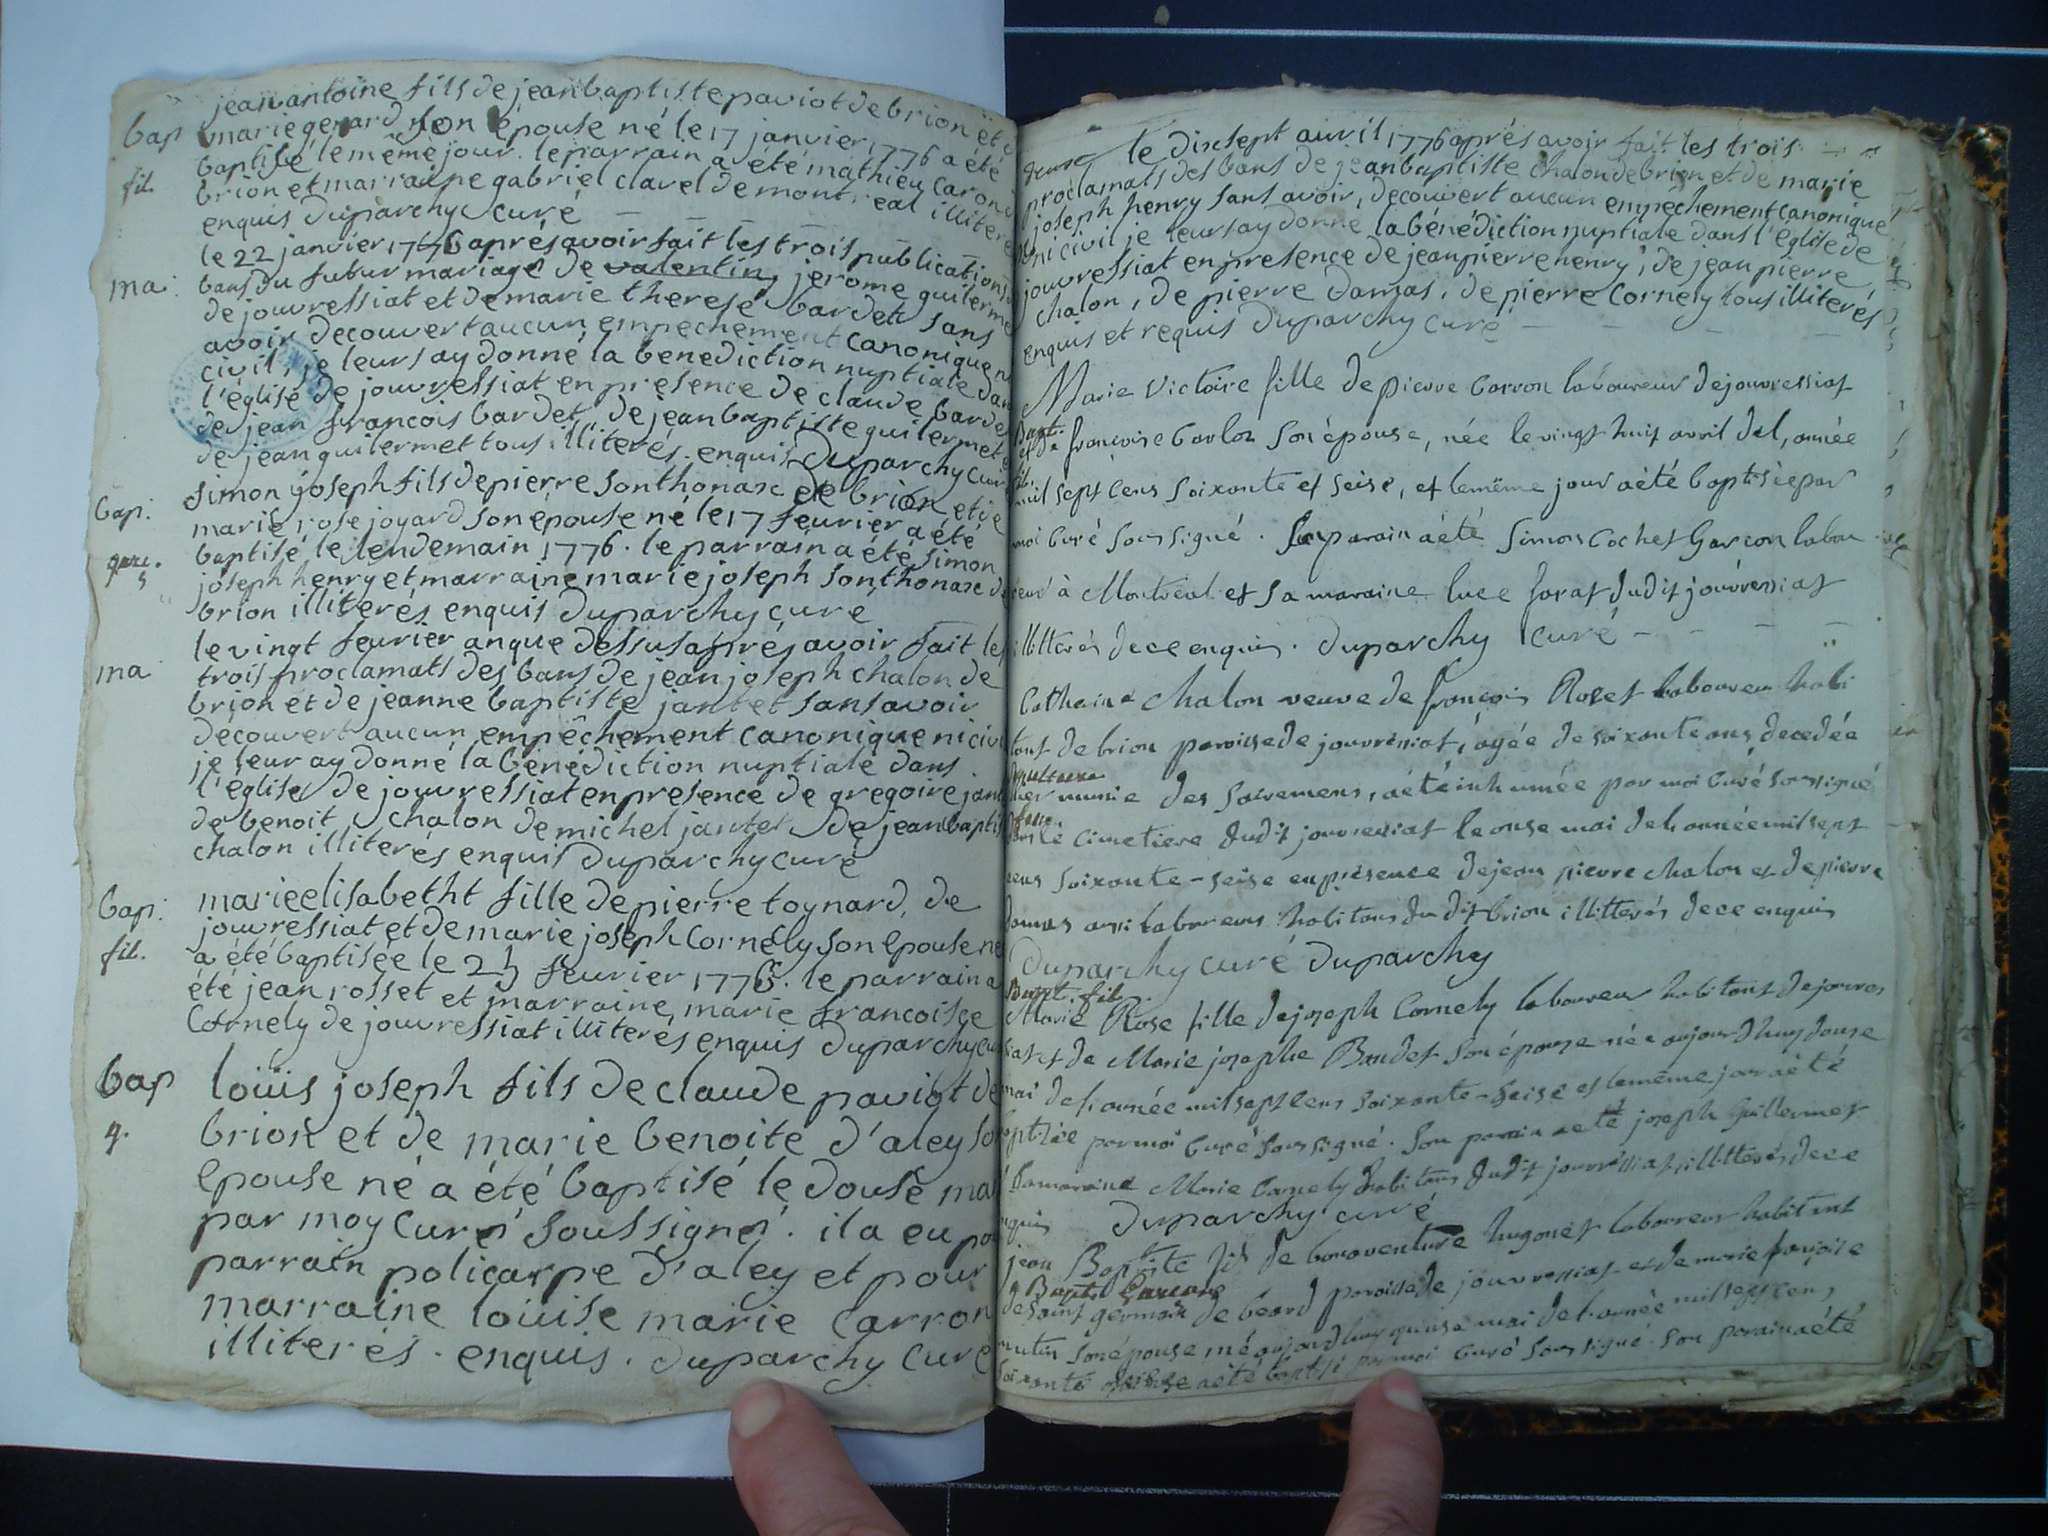 jean antoine fils de jean baptiste paviot de brion et
bap marie gerard son épouse né le 17 janvier 1776 a été
baptisé le même jour. le parrain a été mathieu caron
fil. brion et marraine gabriel clavel de montreal illiterés
enquis Duparchy curé
le 22 janvier 1776 aprés avoir fait les trois publications
ma. bans du futur mariage de valentin jerome guilerme
de jouvressiat et de marie therese bardet sans
avoir decouvert aucun empechement canonique ni
civil, je leurs ay donné la benediction nuptiale dans
l'église de jouvressiat en presence de claude bardet
de jean francois bardet de jean baptiste guilermet
de jean guilermet tous illiterés. enquis Duparchy curé
simon joseph fils de pierre sonthonax de brion et de
bap. marie rose joyard son épouse né le 17 fevrier a été
baptisé le lendemain 1776. le parrain a été simon
joseph henry et marraine marie joseph sonthonax de
brion illiterés enquis Duparchy curé
le vingt fevrier an que dessus aprés avoir fait les
ma trois proclamats des bans de jean joseph chalon de
brion et de jeanne baptiste jantet sans avoir
decouvert aucun empêchement canonique ni civil
je leur ay donné la bénédiction nuptiale dans
l'église de jouvressiat en presence de gregoire jan
de benoit chalon de michel jantet de jean baptis
chalon illiterés enquis Duparchy curé
bap. marie elisabetht fille de pierre toynard, de
jouvressiat et de marie joseph Cornely son epouse né
fil. a été baptisée le 21 fevrier 1776. le parrain a
été jean rosset et marraine marie francoise
Cornely de jouvressiat illiterés enquis Duparchy cu
bap loüis joseph fils de claude paviot de
g. brion et de marie benoite d'aley son
epouse né a été baptisé le douse ma
par moy curé soussigné. il a eu po
parrain policarpe d'aley et pour
marraine louise marie Carron
illiterés. enquis. Duparchy Curé
le dixsept avril 1776 aprés avoir fait les trois
proclamats des bans de jean baptiste chalon de brion et de marie
joseph henry sans avoir decouvert aucun empêchement canonique
ni civil je leurs ay donné la bénédiction nuptiale dans l'église de
jouvressiat en presence de jean pierre henry, de jean pierre
chalon, de pierre Damas, de pierre Cornely tous illiterés
enquis et requis Duparchy curé
Marie Victoire fille de pierre Carron laboureur de jouvressiat
Bapt.
et de francoise Carlon son épouse, née le vingt huit avril del, année
fil.
mil sept cens soixante et seise, et le même jour a été baptisée par
moi Curé soussigné. Son parain a été Simon Cochet Garcon labou
reur à Montréal et sa maraine luce forat dudit jouvressiat
illitterés de ce enquis. Duparchy curé
Catherine Chalon veuve de françois Roset laboureur habi
tant de brion paroisse de jouvressiat, agée de soixante ans decedée
sepulture
hier munie des sacremens, a été inhumée par moi curé soussigné
dans le cimetiere dudit jouvressiat le onse mai del, année mil sept
cens soixante-seise en présence de jean pierre chalon et de pierre
damas aussi laboureurs habitans du dit brion illitterés de ce enquis
Duparchy curé Duparchy
Bapt. fil.
Marie Rose fille de joseph Cornely laboureur habitant de jouvres
siat et de Marie josephe Bardet son épouse née aujourdhuy douse
mai del, année mil sept cens soixante-seise et le même jour a été
baptisée par moi Curé soussigné. Son parain a été joseph Guillermet
sa maraine Marie Cornely habitans dudit jouvressiat, illitterés de ce
enquis Duparchy curé
jean Baptiste fils de bonaventure hugonet laboureur habitant
Bapt. Garcon
de saint germain de beard paroisse de jouvressiat et de marie françoise
son épouse né aujourdhuy quinse mai del, année mil sept cens
soixante et seise a été baptisé par moi curé soussigné. Son parain a été